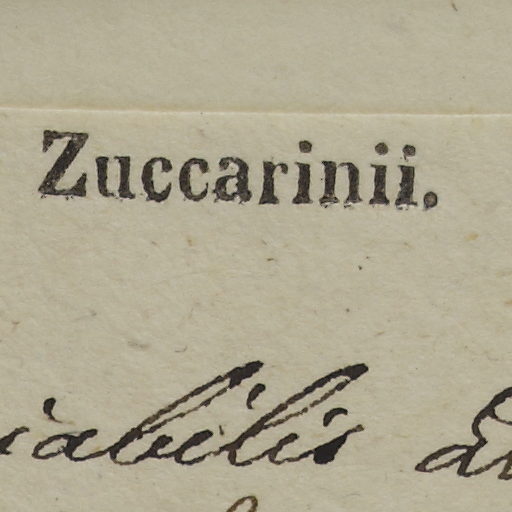 Zuccarinii.
iabilis